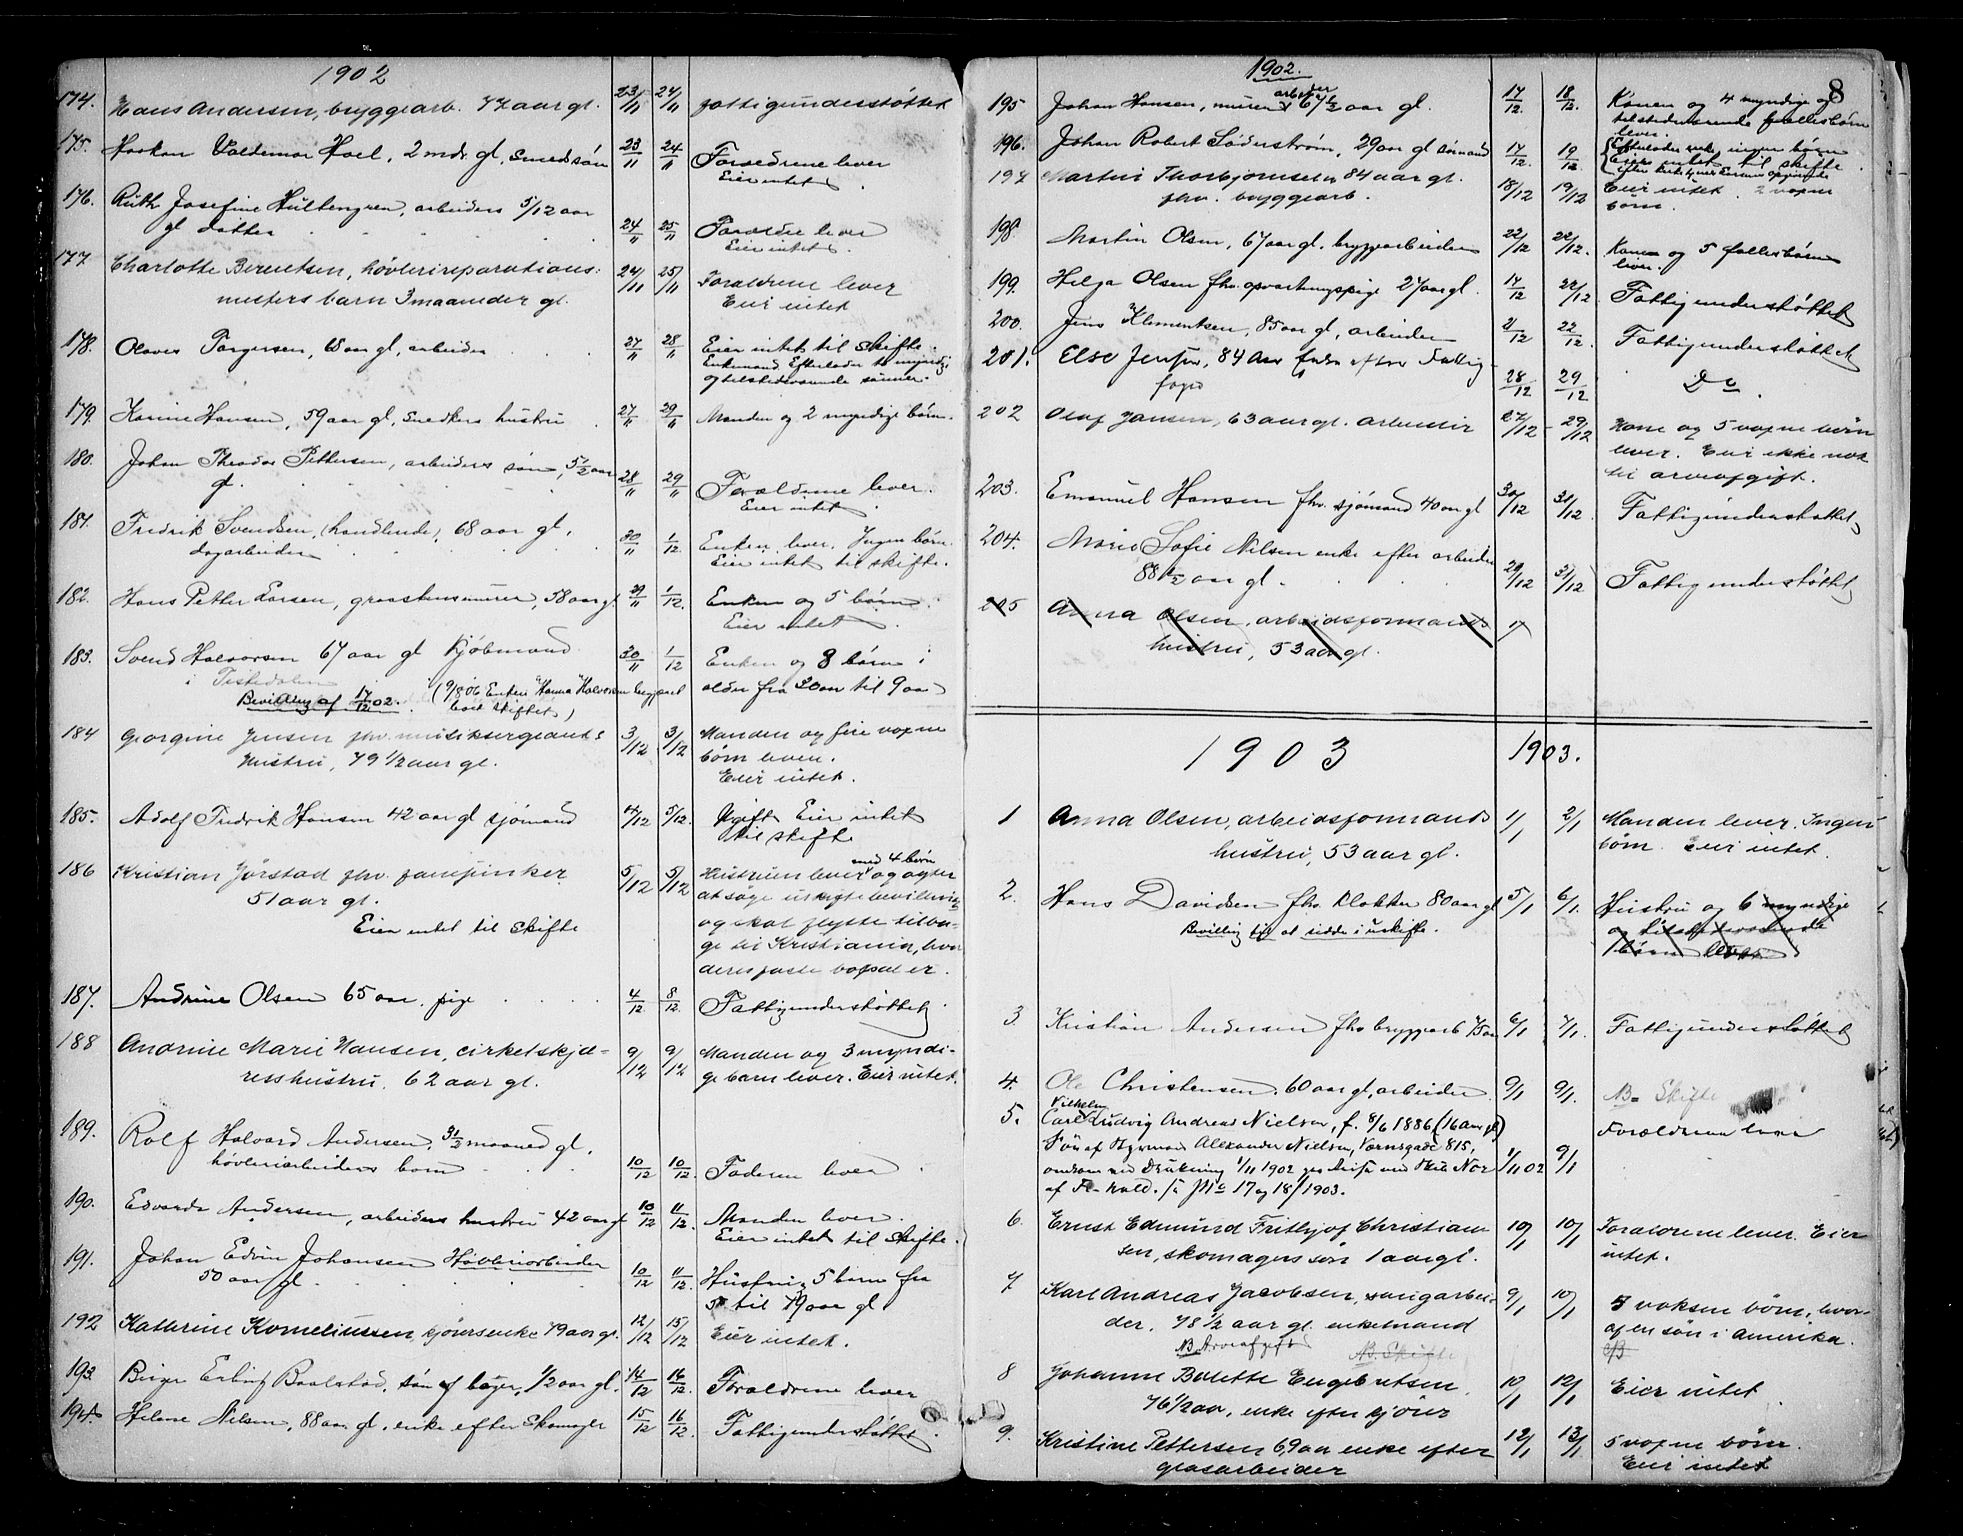 1902
174. Hans Andersen, bryggearb. 77 aar gl. 23/11 24/11 fattigunderstøttet
175. Haakon Valdemar Hoel, 2 mdr gl, smeds søn 23/11 24/11 Forældrene lever
Eier intet
176. Ruth Josefine Hultengren, arbeiders 5/12 aar
gl datter 24/11 25/11 Forældre lever
Eier intet.
177. Charlotte Berentsen, høvlerireparations-
mesters barn 3 maaneder gl. 24/11 25/11 Forældrene lever
Eier intet
178. Olaves Torgersen, 68 aar gl, arbeider 27/11 28/11 Eier intet til skifte.
Enkemand. Efterlader to myndige
og tilstedeværende sønner.
179. Karine Hansen, 59 aar gl, snedkers hustru 27/11 29/11 Manden og 2 myndige børn.
180. Johan Theodor Pettersen, arbeiders søn, 5 1/2 aar
gl. 28/11 29/11 Forældrene lever.
Eier intet.
181. Fredrik Svendsen, (handlende), 68 aar gl,
dagarbeider 30/11 1/12 Enken lever. Ingen børn.
Eier intet til skifte.
182. Hans Petter Larsen, graastensmurer, 58 aar gl. 30/11 1/12 Enken og 5 børn.
Eier intet.
183. Svend Halvorsen 67 aar gl Kjøbmand 30/11 1/12 Enken og 8 børn i
i Tistedalen
Bevilling af 17/12 02. (9/8 06 Enken "Hanna" Halvorsen begjært alder fra 30 aar til 9 aar
boet skiftet)
184 Georgine Jensen fhv. musiksergeants 3/12 3/12 Manden og fire voxne
hustru, 79 1/2 aar gl. børn lever.
Eier intet.
185. Adolf Fredrik Hansen 42 aar gl sjømand 4/12 5/12. Ugift Eier intet
til skifte
186 Kristian Jørstad fhv. 5/12 5/12 Hustruen lever med 4 børn og agter
51 aar gl. at søge uskiftebevilling
Eier intet til skifte og skal flytte tilba-
ge til Kristiania, hvor
deres faste bopæl er.
187. Andrine Olsen 65 aar, pige 4/12 8/12 Fattigunderstøttet.
188 Andrine Marie Hansen, cirkelskjæ- 9/12 9/12 Manden og 3 myndi-
rers hustru, 62 aar gl. ge barn lever. Eier intet.
189. Rolf Halvard Andersen, 3 1/2 maaned gl,
høvleriarbeiders barn 10/12 10/12 Faderen lever
190. Edvarda Andersen, arbeiders hustru 42 aar gl 10/12 11/12. Manden lever.
Eier intet til skifte.
191. Johan Edvin Johansen Høvleriarbeider
50 aar gl. 10/12 11/12. Hustru, 5 børn fra
5 til 19 aar gl
192 Kathrine Korneliussen, kjørers enke 79 aar gl. 12/12 15/12 Eier intet.
193. Birger Erling Baalstad, søn af bager, 1/2 aar gl. 14/12 16/12. Forældrene lever
194. Helene Nilsen, 88 aar gl, enke efter Skomager 15/12 16/12. Fattigunderstøttet
8
1902.
195 Johan Hansen, murerarbeider 67 1/2 aar gl. 17/12. 18/12. Konen og 4 myndige og
tilstedeværende fællesbørn
lever.
196. Johan Robert Söderström, 29 aar gl sømand 17/12. 19/12 Efterlader enke ingen børn
Eier intet til skifte
efter opgivende
197 Martin Thorbjørnsen 84 aar gl. 18/12 19/12 Eier intet. 2 voxne
fhv. bryggearb. børn.
198. Martin Olsen, 67 aar gl. bryggearbeider 22/12 22/12. Konen og 5 fællesbørn
lever.
199. Helga Olsen fhv. opvartningspige 27 aar gl. 17/12 22/12 Fattigunderstøttet
200. Jens Klementsen, 85 aar gl, arbeider 21/12 22/12. Fattigunderstøttet
201. Else Jensen, 84 Aar Enke efter Fattig-
foged 28/12 29/12 Do.
202 Olaf Jansen, 63 aar gl. arbeider 27/12 29/12 Kone og 5 voxne børn
lever. Eier ikke nok
til arveafgift.
203. Emanuel Hansen fhv. sjømand 40 aar gl 30/12 31/12. Fattigunderstøttet
204. Marie Sofie Nilsen enke efter arbeider
88 1/2 aar gl. 29/12 31/12 Fattigunderstøttet
205 Anna Olsen, arbeidsformands
hustru, 53 aar gl.
1903 1903.
1 Anna Olsen, arbeidsformands 1/1 2/1 Manden lever. Ingen
hustru, 53 aar gl. børn. Eier intet.
2. Hans Davidsen fhv. Klokker 80 aar gl 5/1 6/1. Hustru og 6 myndige
Bevilling til at sidde i uskifte. og tilstedeværende
børn lever
3 Kristian Andersen fhv bryggearb 75 aar 6/1 7/1. Fattigunderstøttet
4. Ole Christensen, 60 aar gl, arbeider 9/1 9/1. NB Skifte
5. Carl Vilhelm Ludvig Andreas Nielsen, f. 8/6 1886 (16 aar gl) Forældrene lever
Søn af Styrmand Alexander Nielsen, Værnsgade 815,
omkom ved Drukning 1/11 1902 1/11 02 9/1
af F-hald. 17 og 18/1903.
6. Ernst Edmund Fritjof Christian- 10/1 10/1 Forældrene lever. Eier
sen, skomagers søn 1 aar gl. intet.
7 Karl Andreas Jacobsen, sangarbei- 9/1 10/1 5 voksne børn, hvor-
der, 78 1/2 aar gl. enkemand af en søn i Amerika.
NB Arveafgift NB. Skifte
8 Johanne Bolette Engebretsen 10/1 12/1 Eier intet
76 1/2 aar, enke efter kjører
9. Kristine Pettersen 69 aar enke efter 12/1 13/1 5 voxne børn.
gasarbeider Eier intet